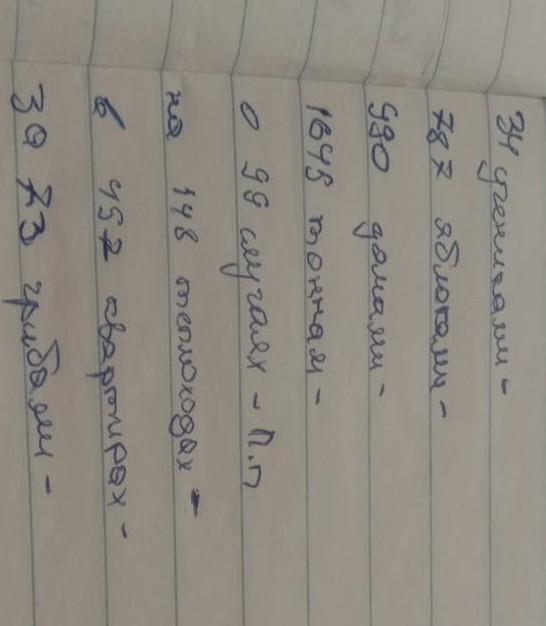 34 учениками -
787 яблоками -
990 домами -
1645 тоннам -
о 99 случаях - П.п
на 148 теплоходах -
в 457 квартирах -
за 73 грибами -